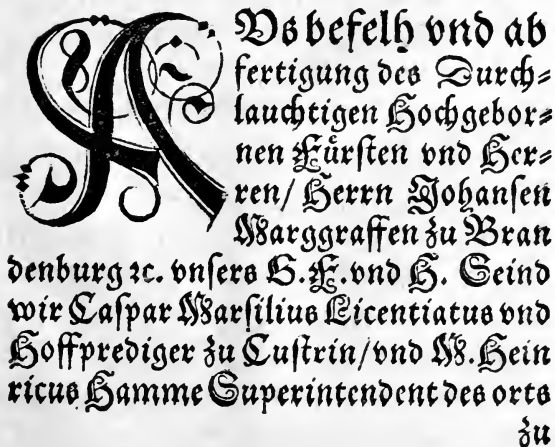 AVs befelh vnd ab
fertigung des Durch⸗
lauchtigen Hochgebor⸗
nen Fuͤrſten vnd Her⸗
ren/ Herrn Johanſen
Marggraffen zu Bran
denburg ꝛc. vnſers G.F.vnd H. Seind
wir Caſpar Marſilius Licentiatus vnd
Hoffprediger zu Cuſtrin/vnd M.Hein
ricus Hamme Superintendent des orts
zu